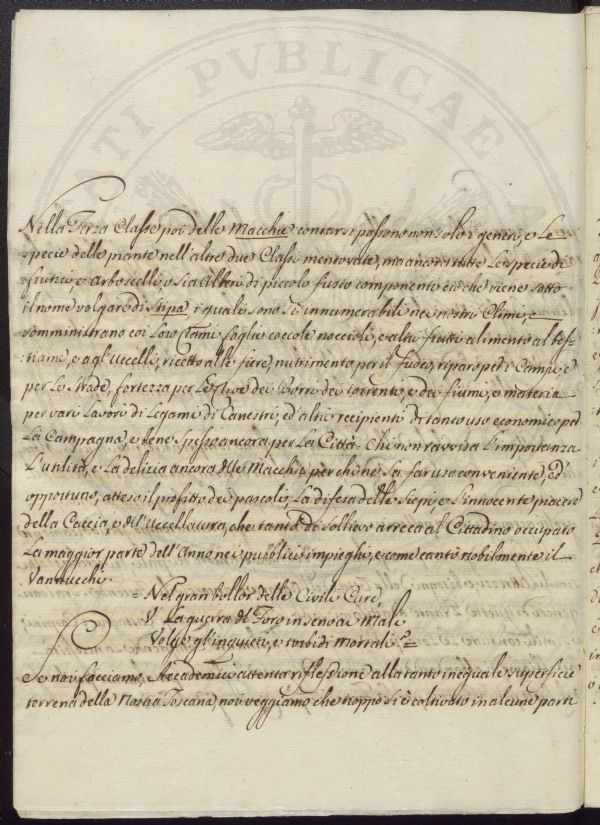 ATI PVBLICAE
Nella Terza Classe poi delle Macchie contarsi possono non solo i generi, e Le
specie delle piante nell'altre due Classi mentovate, ma ancora tutte Le specie di
frutici, e Arboscelli, o sia Alberi di piccolo fusto componenti ciò che viene sotto
il nome volgare di Stipa i quali sono sì innumerabili ne nostri Climi, e
somministrano coi Loro Rami foglie coccole noccioli, e altri frutti alimento al bes-
tiame, e agl'Uccelli, ricetto alle fiere, nutrimento per il fuoco, riparo pe i Campi, e
per Le strade, fortezza per Le Rive dei Borri dei torrenti, e dei fiumi, e materia
per varj Lavori di Legami di Canestri, ed altri recipienti di tanto uso economico per
La Campagna, e bene spesso ancora per La Città. Chi non ravvisa L'importanza
L'utilità, e La delizia ancora delle Macchie per chi ne sa far uso conveniente, ed
opportuno, atteso il profitto dei pascoli, La difesa delle siepi, e L'innocente piacere
della Caccia, e dell'Uccellatura, che tanto di sollievo arreca al Cittadino occupato
La maggior parte dell'Anno nei pubblici impieghi, e come cantò nobilmente il
Vannucchi.
= Nel gran bollor delle Civili Cure,
V. La guerra del Foro in seno ai Mali
Volge gl'inquieti, e torbidi Mortali. =
Se noi facciamo, Accademici attenta riflessione alla tanto ineguale superficie
terrena della Nostra Toscana, noi veggiamo che troppo si è coltivato in alcune parti